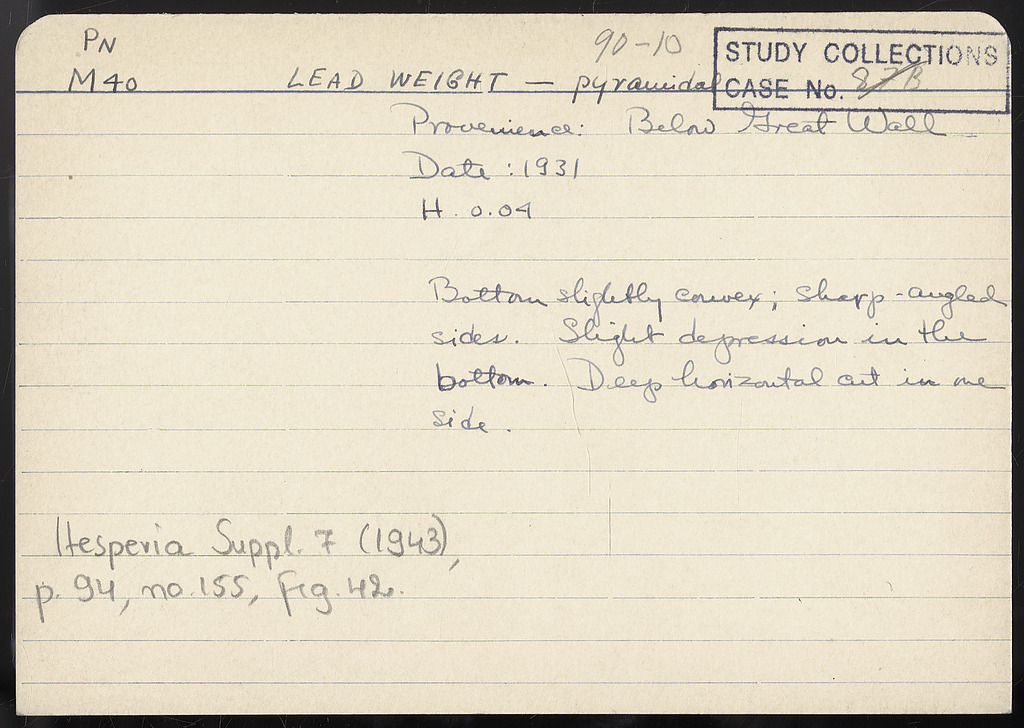 PN 90-10 STUDY COLLECTIONS
M40 LEAD WEIGHT — pyramidal CASE No. 87B
Provenience: Below Great Wall
Date : 1931
H. 0.04
Bottom slightly convex; sharp-angled
sides. Slight depression in the
bottom. Deep horizontal cut in one
side.
Hesperia Suppl. 7 (1943),
p. 94, no. 155, fig. 42.